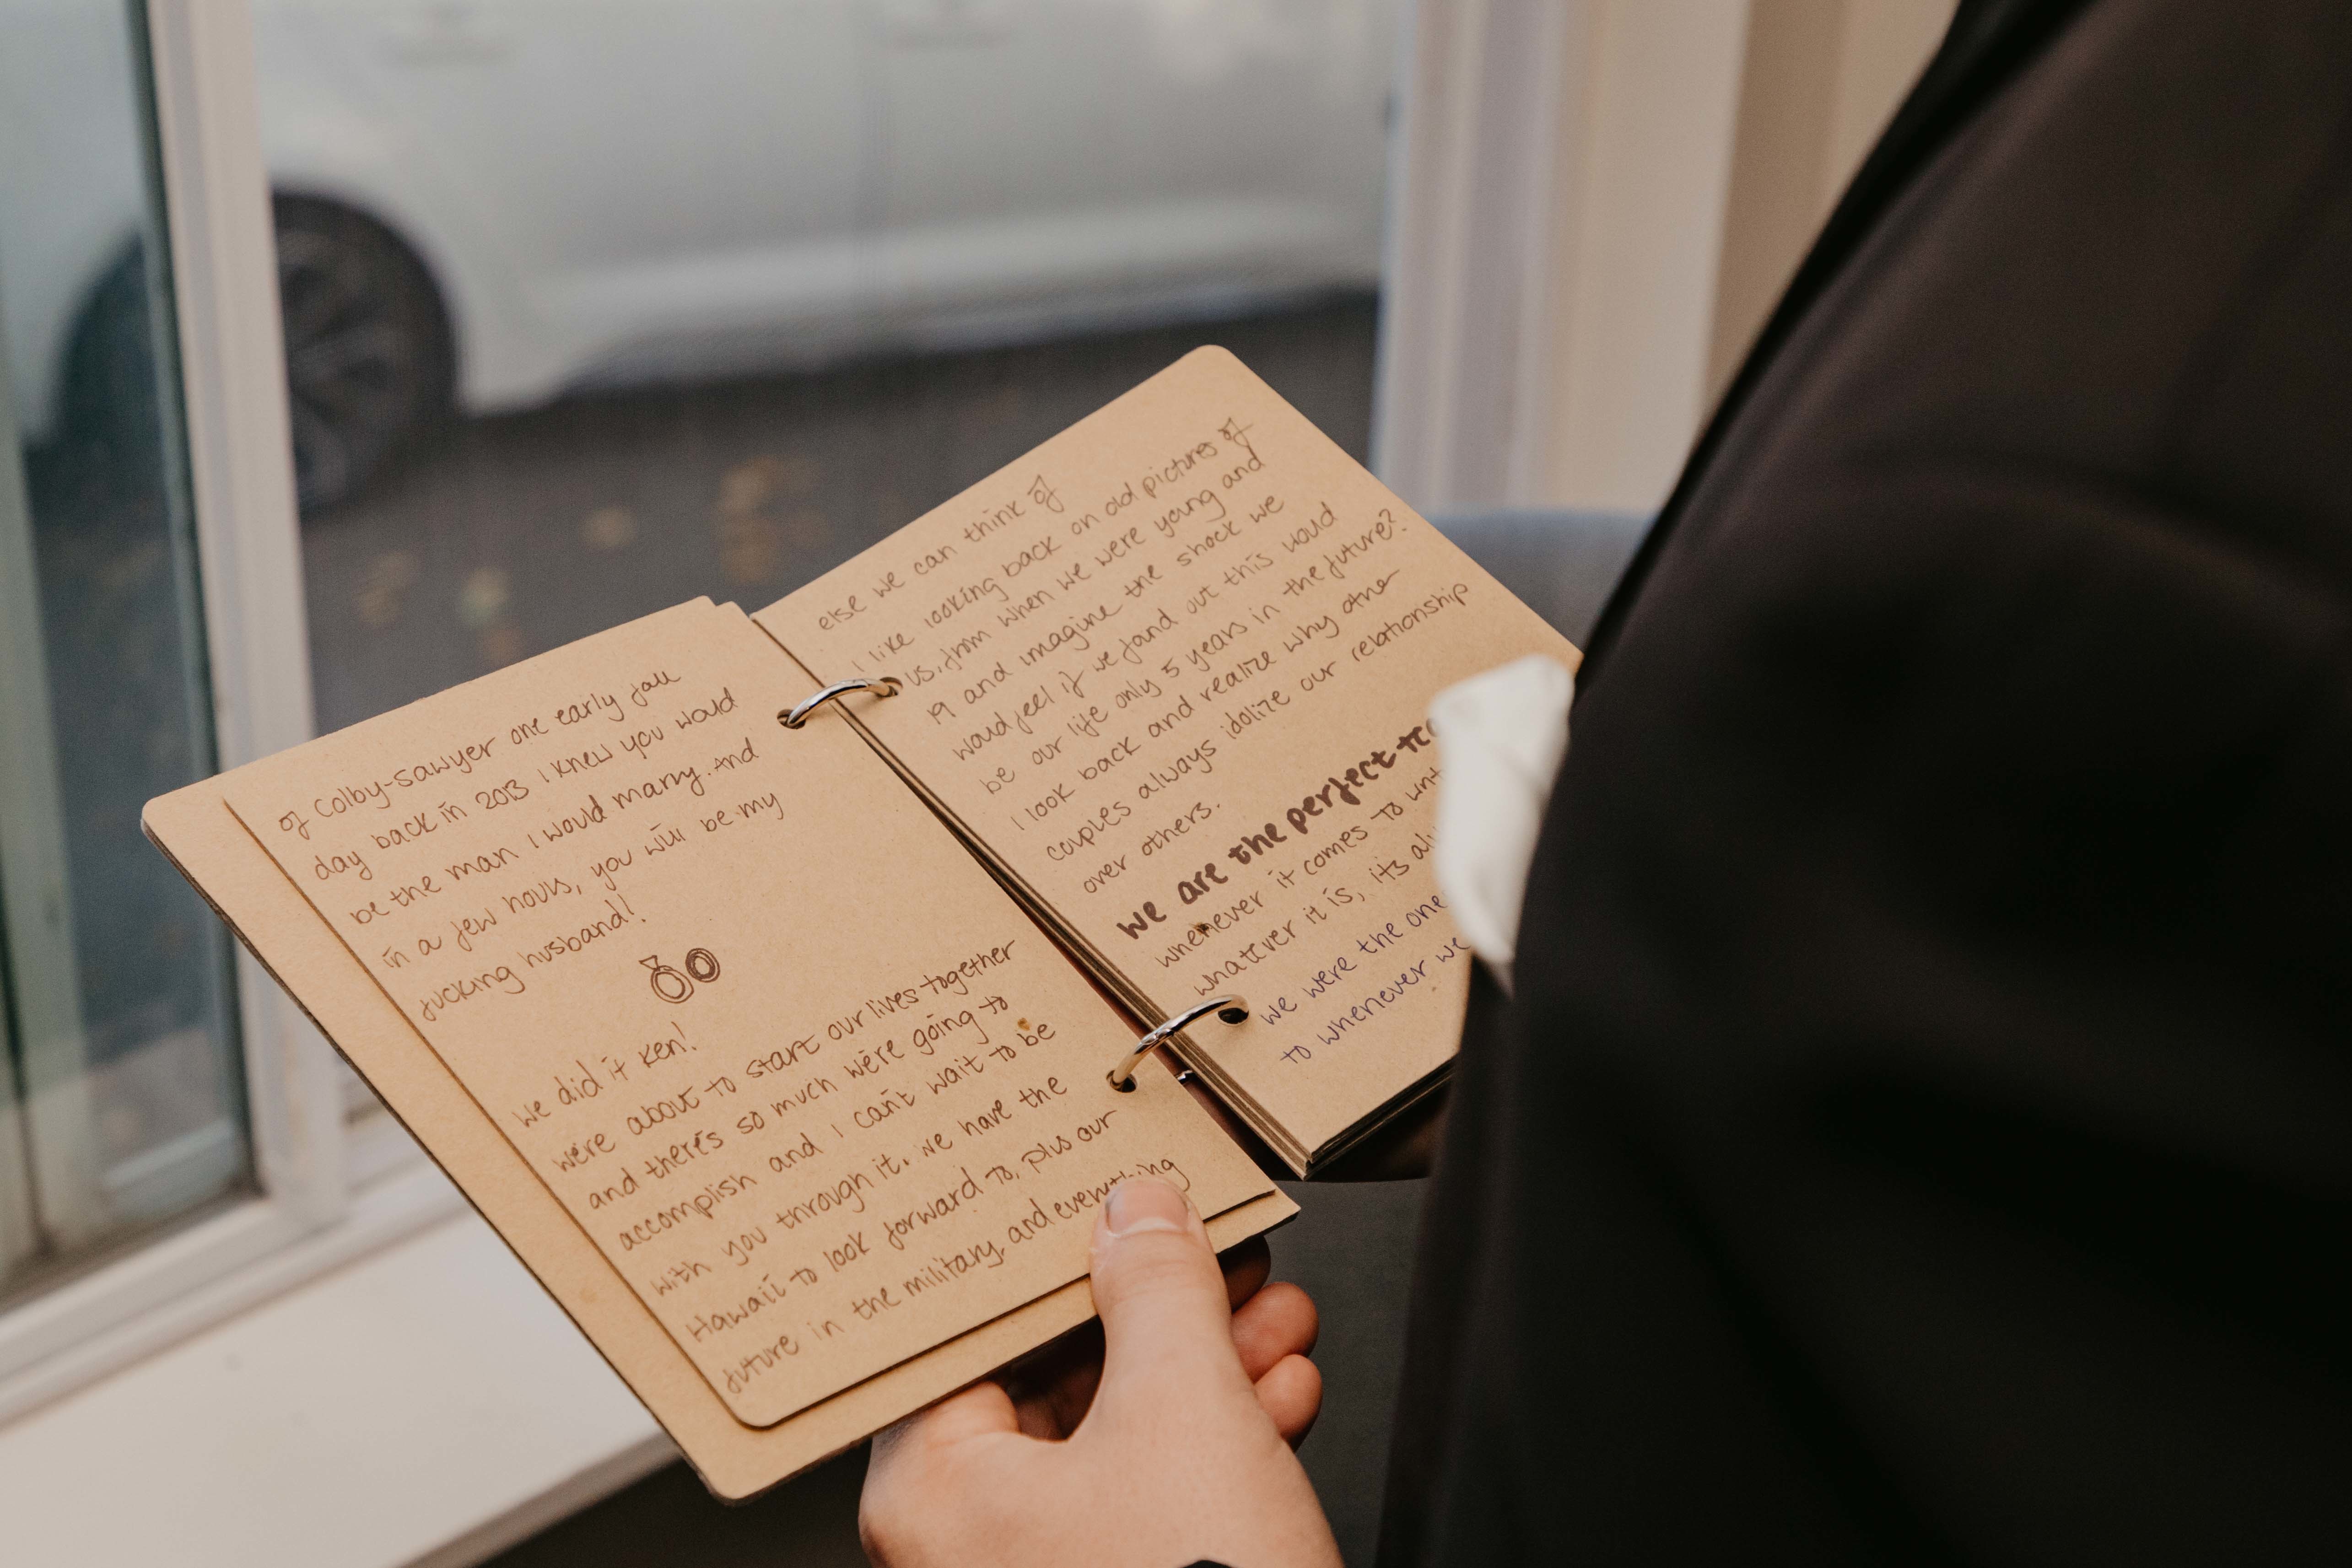 of Colby-Sawyer one early fall
day back in 2013 I knew you would
be the man I would marry. And
in a few hours, you will be my
fucking husband!
We did it Ken!
we're about to start our lives together
and there's so much we're going to
accomplish and I can't wait to be
with you through it. We have the
Hawaii to look forward to, plus our
future in the military, and everything
else we can think of
I like looking back on old pictures of
us, from when we were young and
19 and imagine the shock we
would feel if we found out this would
be our life only 5 years in the future?
I look back and realize why other
couples always idolize our relationship
over others.
we are the perfect
whenever it comes to
whatever it is, its
we were the one
to whenever we